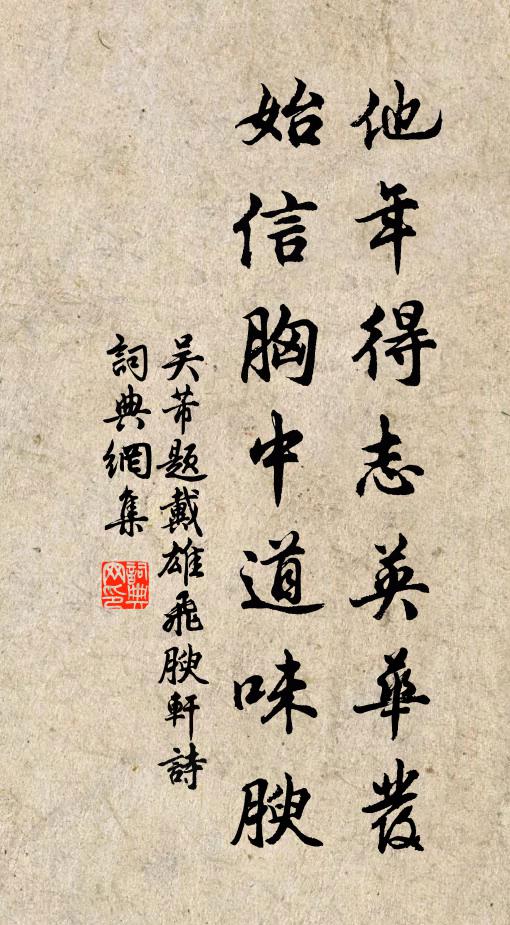 他年得志英華發
始信胸中道味腴
吴芾題戴雄飛腴軒詩
詞典網集
詞典网印